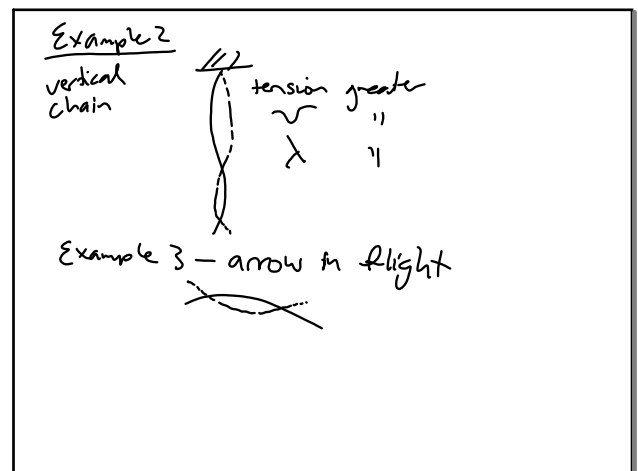 Example 2
vertical
chain
tension greater
v "
λ "
Example 3 – arrow in flight